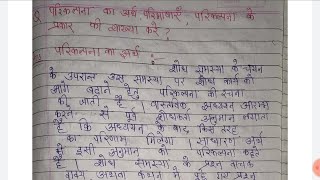 परिकल्पना का अर्थ परिभाषाएँ, परिकल्पना के
प्रकार की व्याख्या करे ?
परिकल्पना का अर्थ :-
शोध समस्या के चयन
के उपरान्त उस समस्या पर शोध कार्य को
आगे बढ़ाने हेतु परिकल्पना की रचना
की जाती है। वास्तविक अध्ययन आरम्भ
करने से पूर्व शोधकर्ता अनुमान लगाता
है कि अध्ययन के बाद किस तरह
का परिणाम मिलेगा। साधारण अर्थ
में इसी अनुमान को परिकल्पना कहते
हैं। शोध समस्या के
वाक्य अथवा कथन